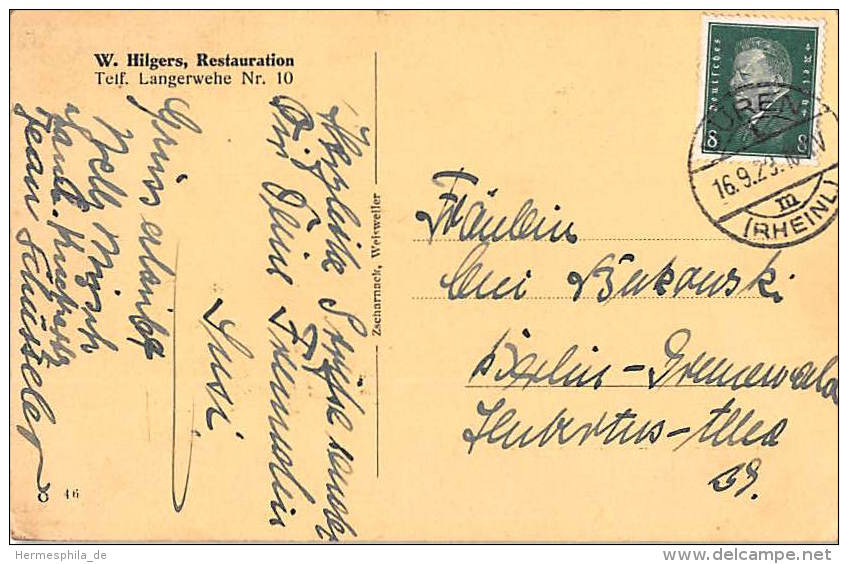 W. Hilgers, Restauration
Telf. Langerwehe Nr. 10
Herzliche Grüße sendet
Dir Deine Freundin
Susi
Gruss erlaubt
Nelly
Jean Schüsseler
46
Zscharnack, Weisweiler
Deutsches Reich
8 8
DÜREN
1
16.9.29.
m
(RHEINL)
Fräulein
Bukowski
Berlin-Grunewald
Hubertus-Allee
39.
Hermesphila_de
delcampe.net